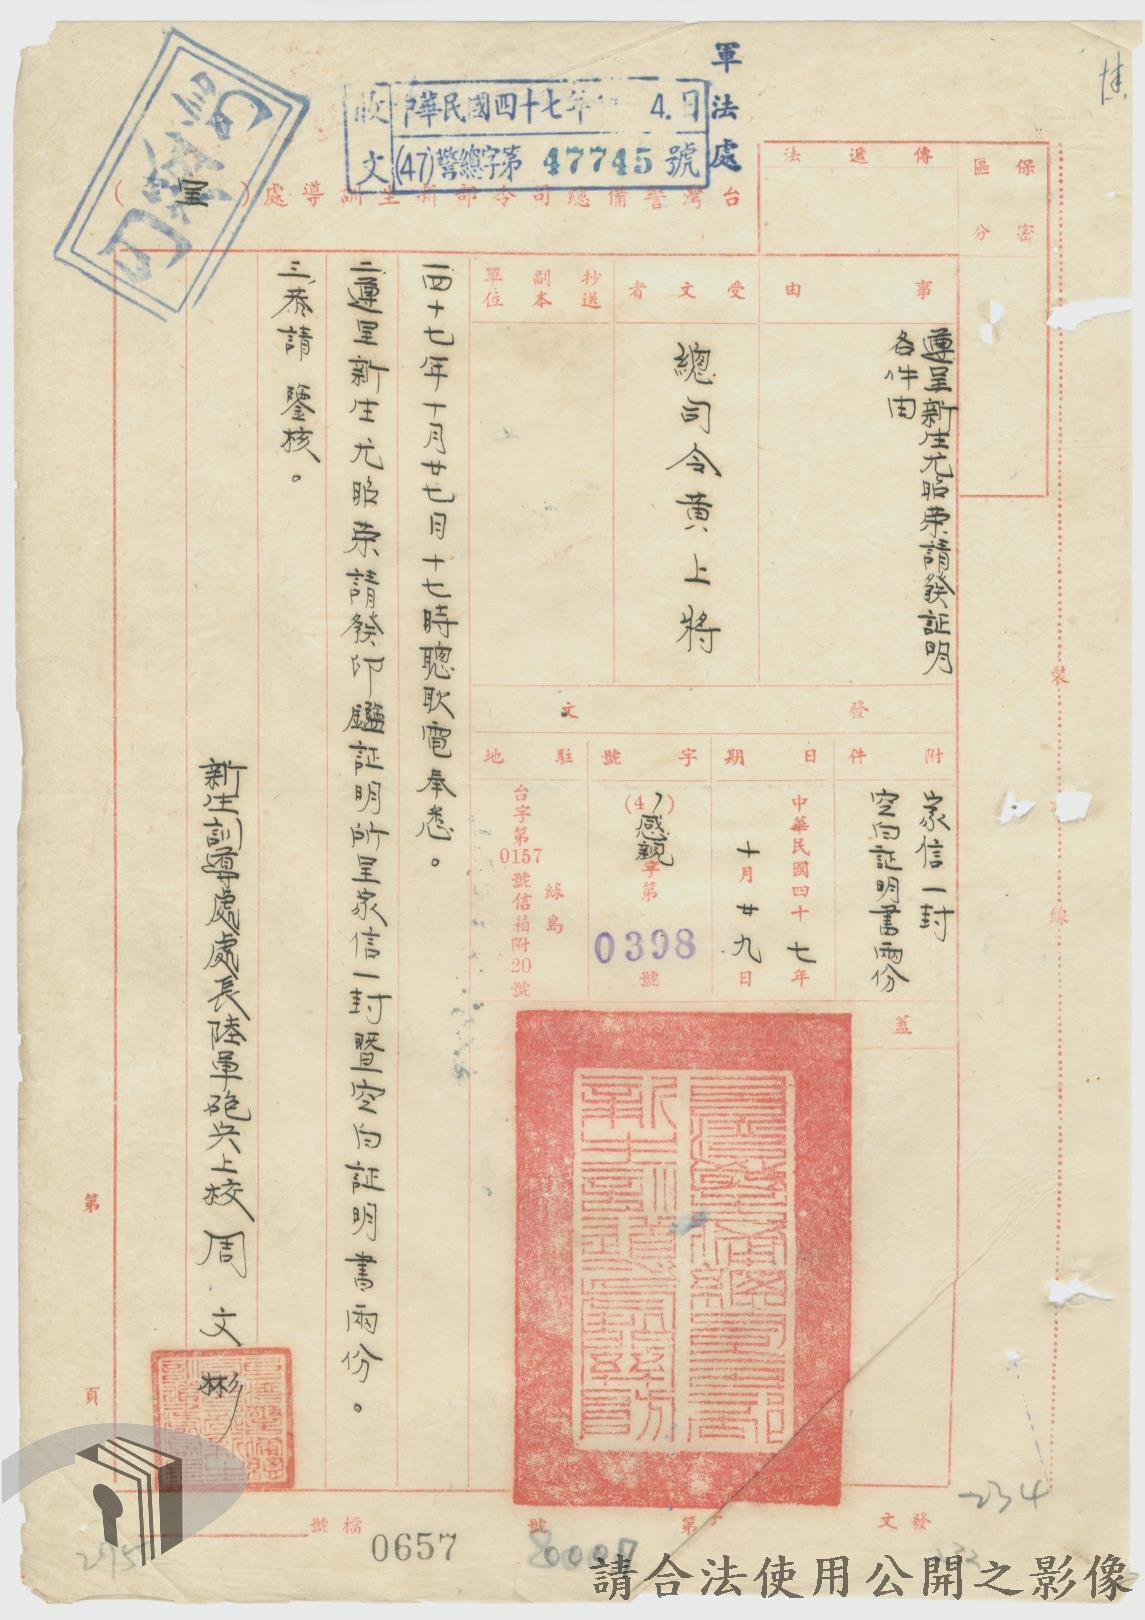 軍法處
收文
中華民國四十七年 4.日
(47)警總字第 47745 號
台灣警備總司令部新生訓導處(呈)
保密區分
傳遞法
事由
遵呈新生尤昭荣請發証明
各件由
受文者
總司令黄上將
抄送副本單位
發文
附件
家信一封
空白証明書兩份
日期
中華民國四十七年
十月廿九日
字號
(47)感親字第0398號
駐地
綠島
台字第0157號信箱附20號
蓋
一四十七年十月廿七月十七時聰耿電奉悉。
二遵呈新生尤昭荣請發印鑑証明所呈家信一封暨空白証明書兩份。
三、恭請 鑒核。
新生訓導處處長陸軍砲兵上校周文彬
裝
線
第
頁
發文
字第
號
80007
檔號
0657
234
請合法使用公開之影像